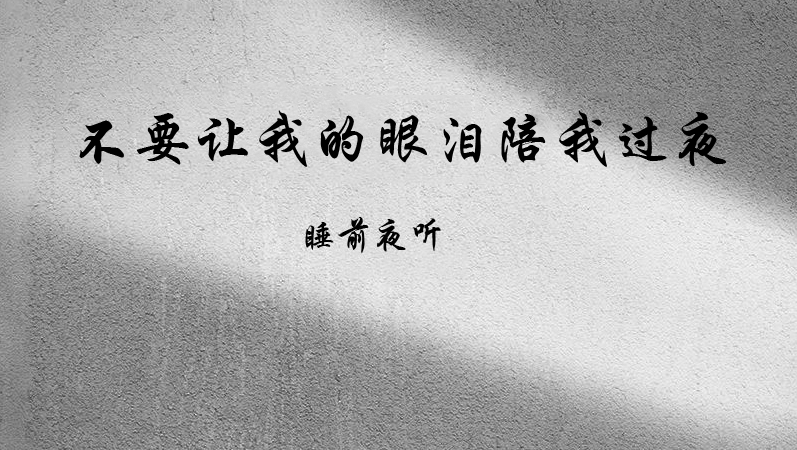 不要让我的眼泪陪我过夜
睡前夜听